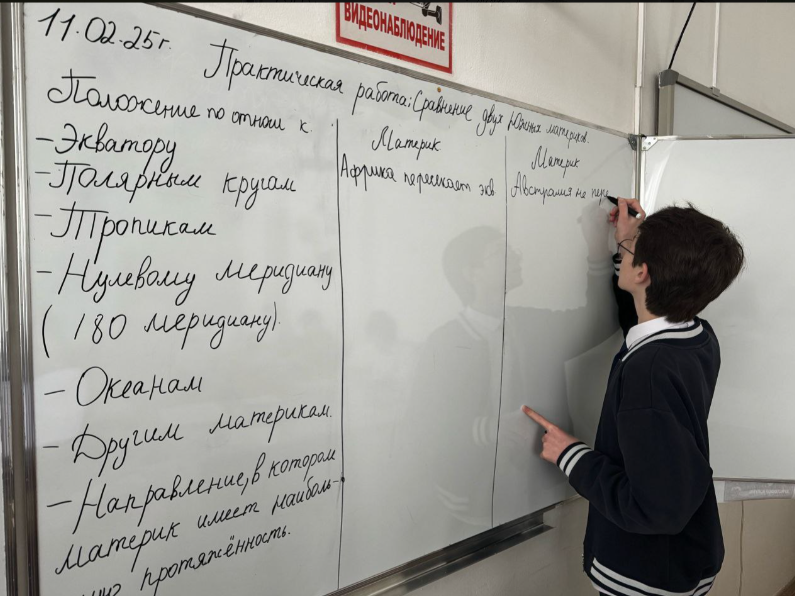 ВИДЕОНАБЛЮДЕНИЕ
11.02.25г.
Практическая работа: Сравнение двух южных материков.
Положение по отнош к.
- Экватору
- Полярным кругам
- Тропикам
- Нулевому меридиану
(180 меридиану).
- Океанам
- Другим материкам.
- Направление, в котором
материк имеет наиболь-
шую протяжённость.
Материк
Африка пересекает экв
Материк
Австралия не пере